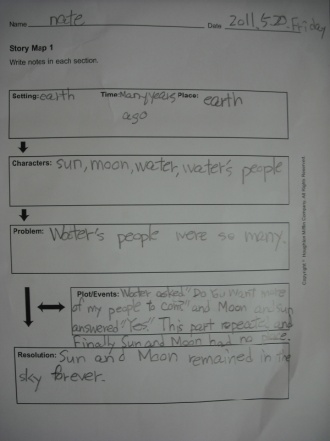 Name nate Date 2011.5.20. Friday
Story Map 1
Write notes in each section.
Setting: earth Time: Many years Place: earth
ago
Characters: sun, moon, water, water's people
Problem: Water's people were so many.
Plot/Events: Water asked "Do you want more
of my people to come" and Moon and sun
answered "Yes." This part repeated and
Finally Sun and Moon had no place.
Resolution: Sun and Moon remained in the
sky forever.
Copyright © Houghton Mifflin Company. All Rights Reserved.